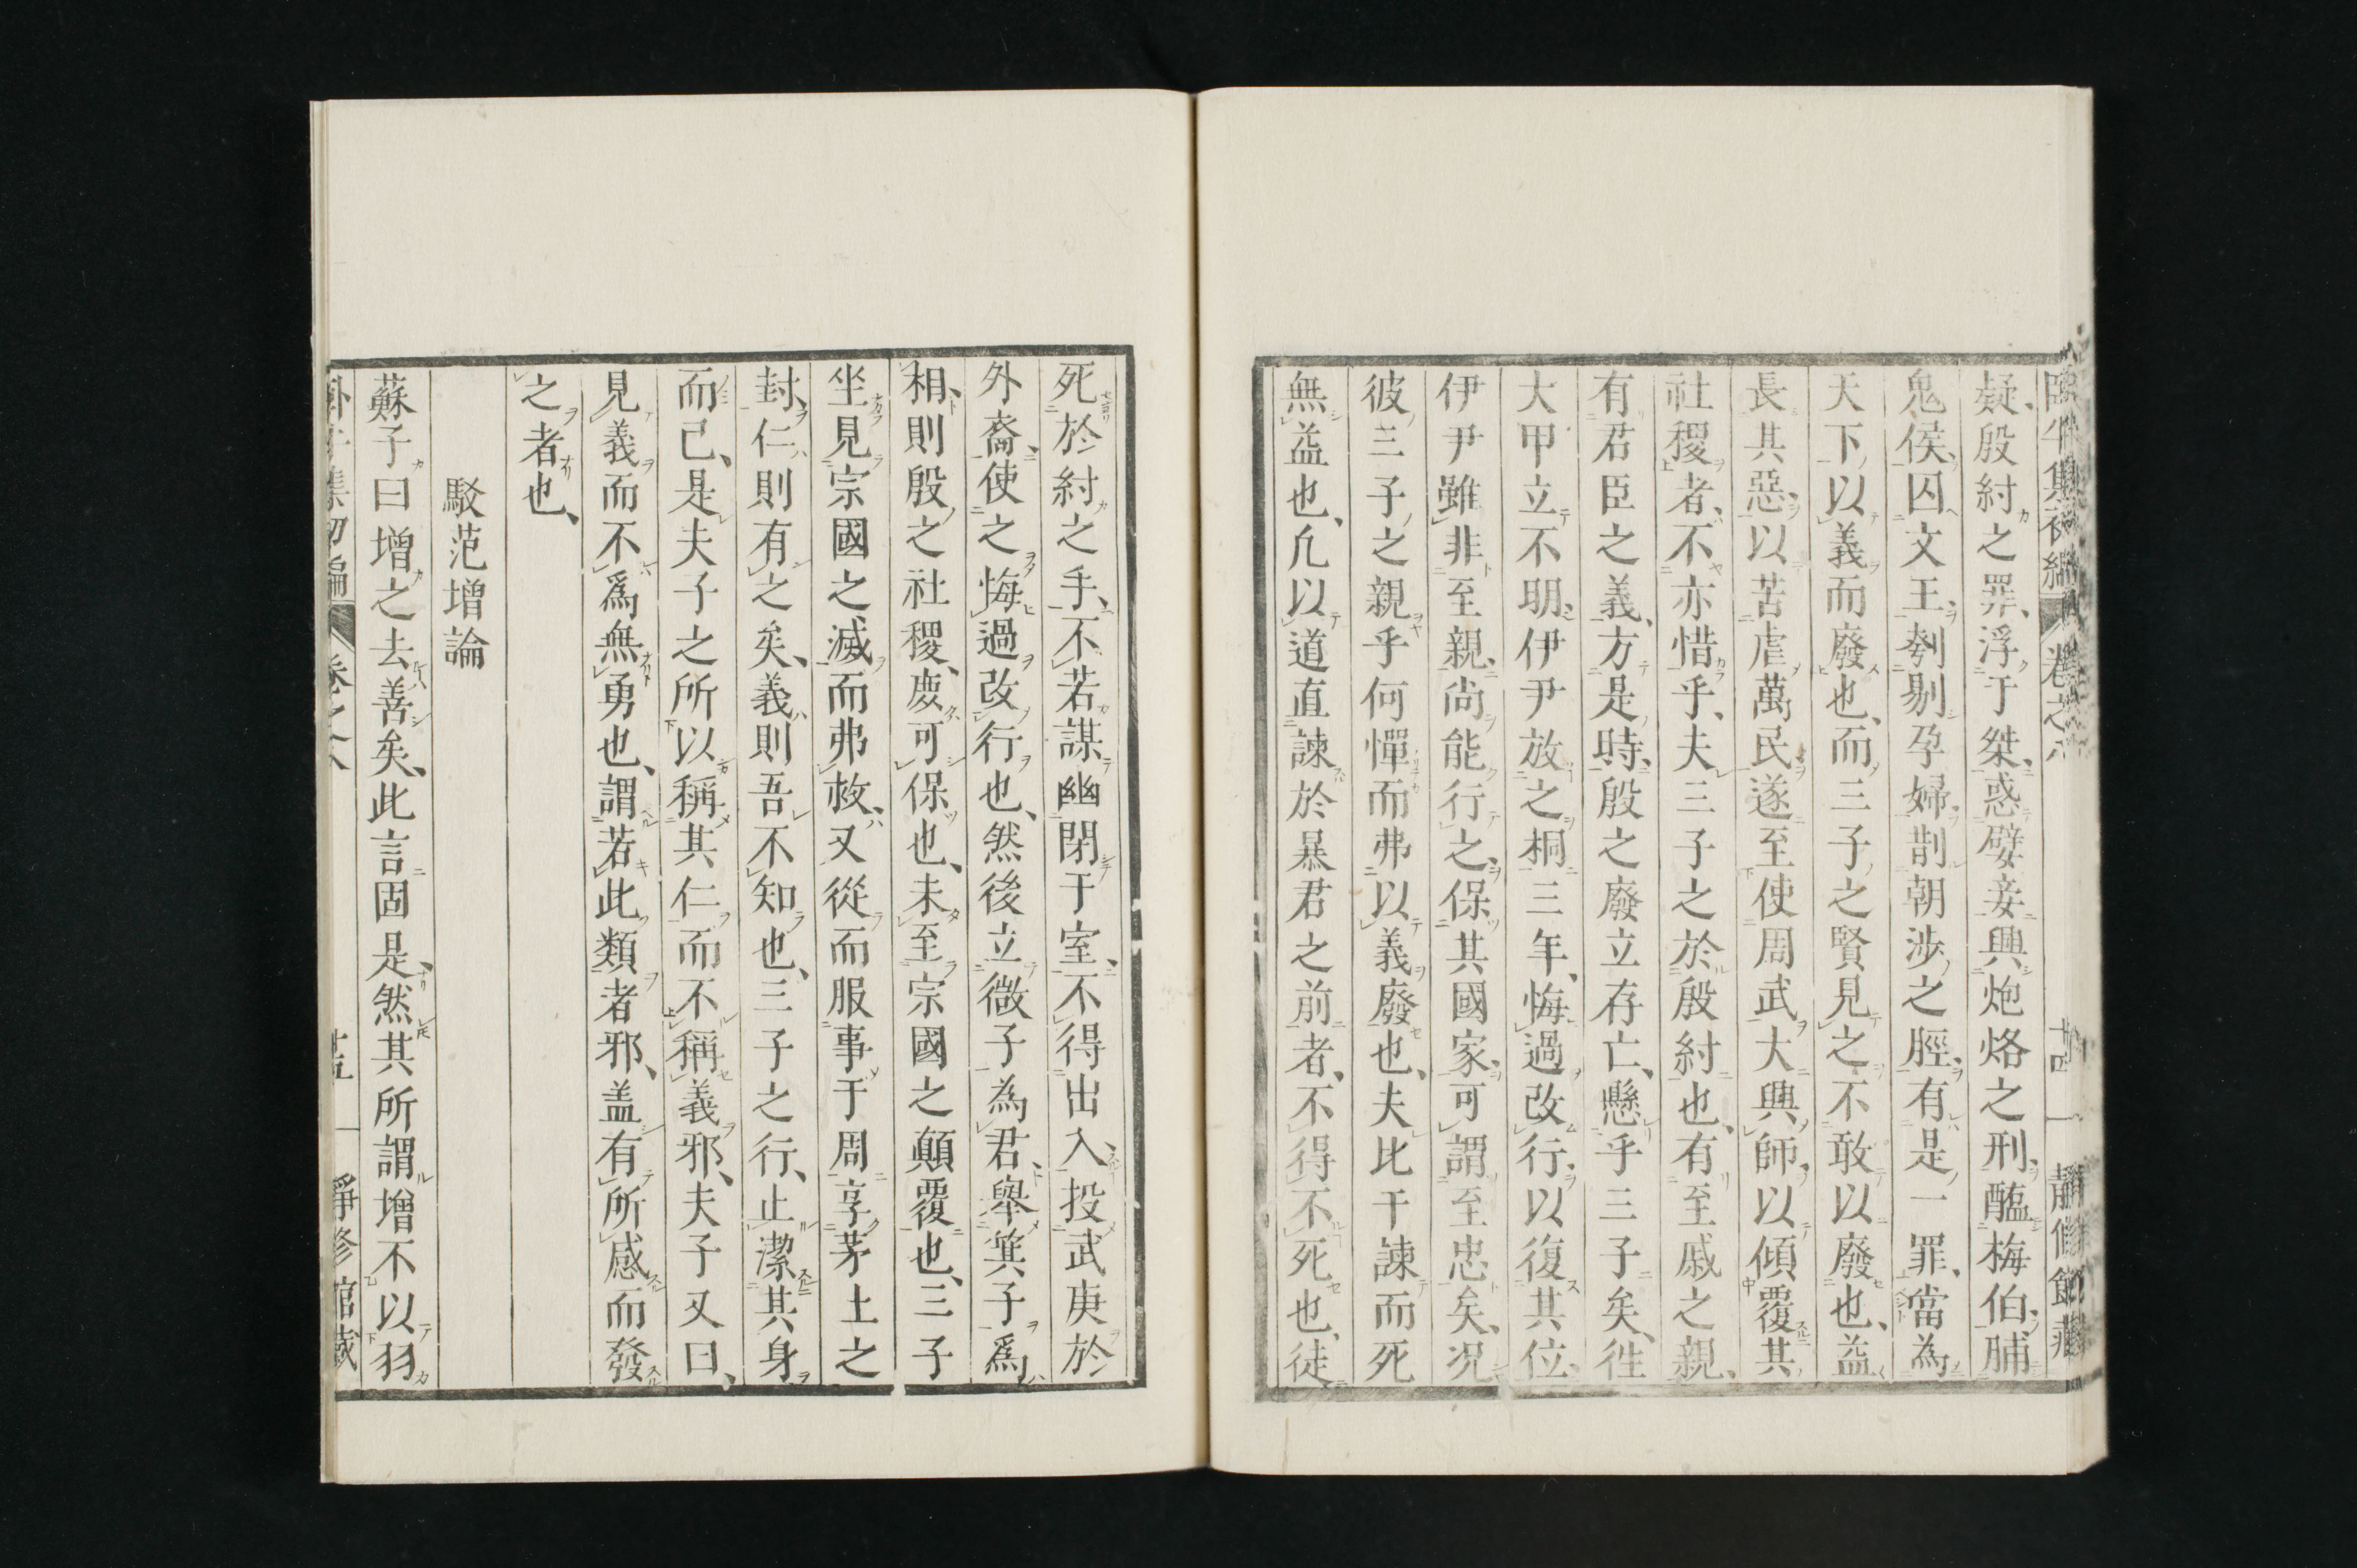 疑、殷紂之罪、浮于桀、惑嬖妾、興炮烙之刑、醢梅伯、脯
鬼侯、囚文王、刳剔孕婦、斮朝渉之脛、有是一罪、當為
天下以義而廢也、而三子之賢見之不敢以廢也、益
長其惡、以苦虐萬民、遂至使周武大興師、以傾覆其
社稷者、不亦惜乎、夫三子之於殷紂也、有至戚之親、
有君臣之義、方是時、殷之廢立存亡、懸乎三子矣、徃
大甲立不明、伊尹放之桐三年、悔過改行、以復其位、
伊尹雖非至親、尚能行之、保其國家、可謂至忠矣、况
彼三子之親乎、何憚而弗以義廢也、夫比干諫而死
無益也、凢以道直諫於暴君之前者、不得不死也、徒
死於紂之手、不若謀幽閉于室、不得出入、投武庚於
外裔、使之悔過改行也、然後立微子為君、舉箕子爲
相、則殷之社稷、庻可保也、未至宗國之顛覆也、三子
坐見宗國之滅而弗救、又從而服事于周、享茅土之
封、仁則有之矣、義則吾不知也、三子之行、止潔其身
而已、是夫子之所以稱其仁而不稱義邪、夫子又曰、
見義而不爲無勇也、謂若此類者邪、盖有所感而發
之者也、
駁范增論
蘇子曰増之去善矣、此言固是、然其所謂增不以羽
卷之六
廿五
靜修館藏